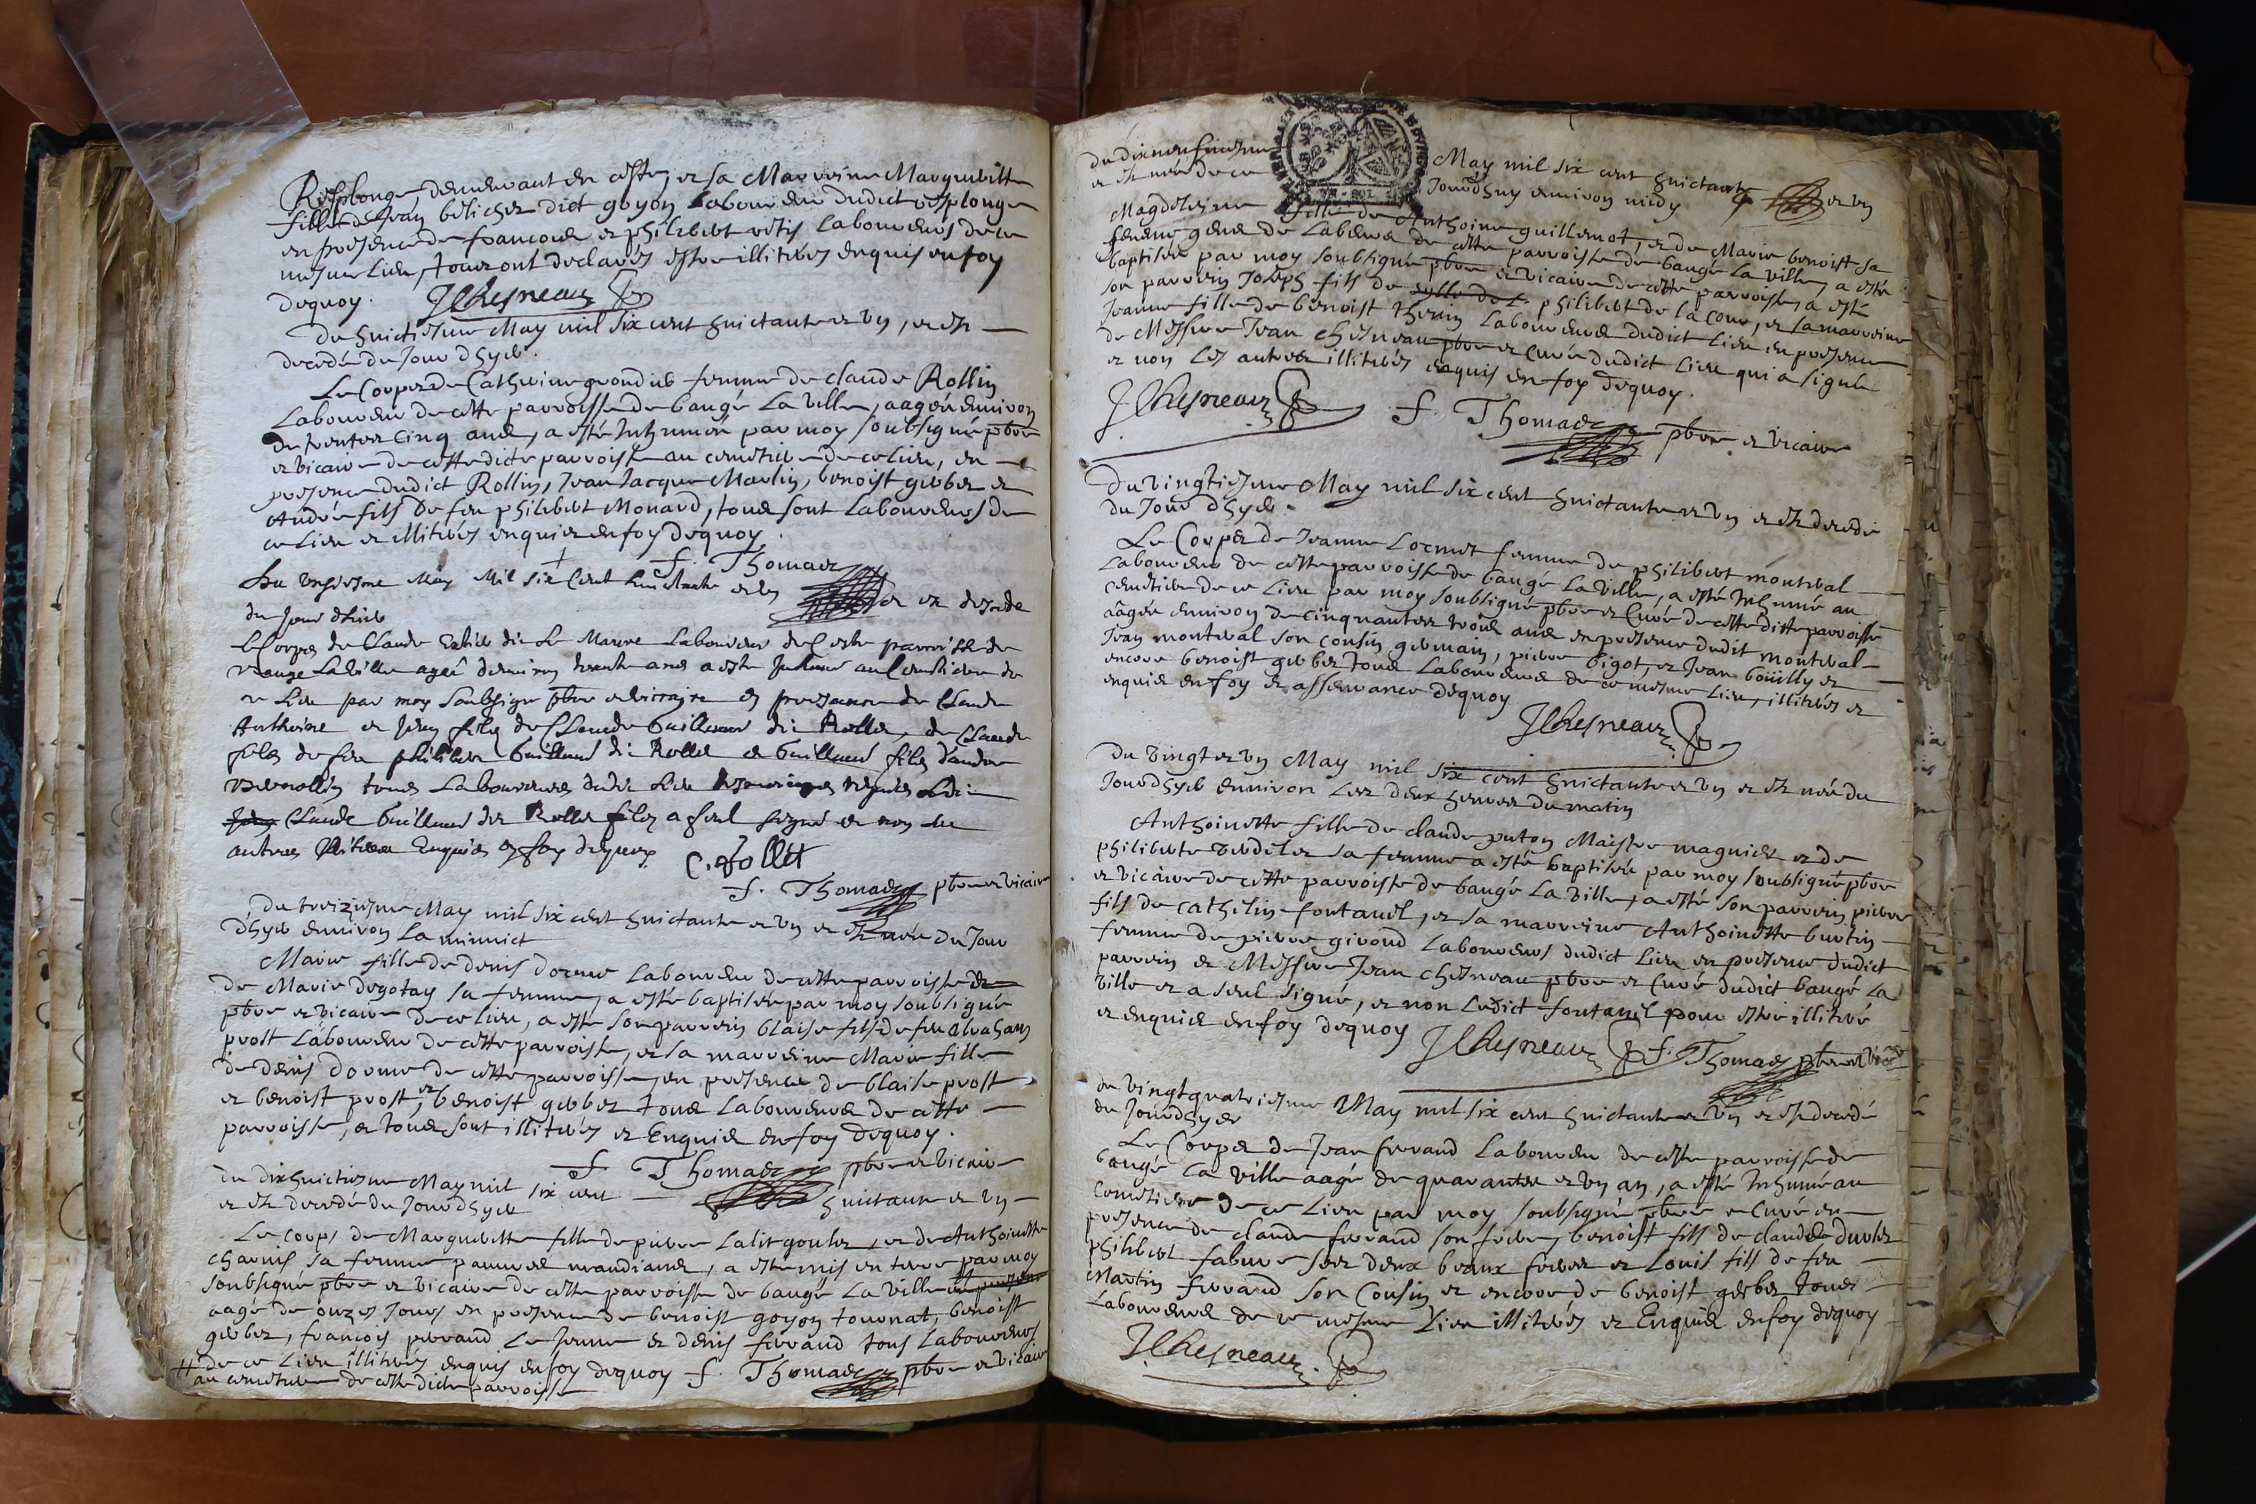 Resplonge demeurant en cette, et sa Marreine Margueritte
fille de Jean belicher dict goyon Laboureur dudict resplonge
en presence de francois et philibert vetis Laboureurs de ce
mesme lieu, tous ont declarés estre illitrés enquis en foy
dequoy. JChesneau
Du huictiesme May mil six cent huictante et un, et est
decedé du Jour dhyer.
Le Corps de Catherine femme de claude Rollin
Laboureur de cette parroisse de baugé La ville, aagée environ
de trente cinq ans, a esté Inhumée par moy soubsigné pbre
et vicaire de cette dicte parroisse au cemetiere de ce lieu, en
presence dudict Rollin, Jean Jacque Marlin, benoist gerbez et
André fils de feu philibert Monard, tous sont Laboureurs de
ce Lieu et illitrés enquis en foy dequoy.
f. Thomas
Du unziesme May Mil six Cent huictante et un et est decede
du Jour dhier
le Corps de Claude dit Le Marre Laboureur de Ceste parroisse de
Bauge La Ville agé denviron trente ans a este Inhumé au Cemetiere de
ce Lieu par moy Soubsigne pbre et viccaire en presance de Claude
Anthoine et Jean fils de Claude Guillaud dit Rollet, de Claude
fils de feu philibert Guillaud dit Rollet et Guillaud fils dandre
tous Laboureurs dudit Lieu requis Ledit
Claude Guillaud dit Rollet fils a seul signé et non les
autres Enquis en foy dequoy C. Follet
f. Thomas pbre et vicaire
Du treiziesme May mil six cent huictante et un et est née du Jour
dhyer environ La minuict
Marie fille de denis dorme Laboureur de cette parroisse et
de Marie degotay sa femme, a esté baptisée par moy soubsigné
pbre et vicaire de ce lieu, a esté son parrein blaise fils de feu abraham
prost Laboureur de cette parroisse, et sa marreine Marie fille
de denis dorme de cette parroisse, en presence de blaise prost
et benoist prost, et benoist gerbez tous Laboureurs de cette
parroisse, et tous sont illitrés et Enquis en foy dequoy.
f. Thomas pbre et vicaire
du dixhuictiesme May mil six cent huictante et un
et est decedé du Jour dhyer
Le corps de Marguerite fille de pierre Lalitgouler, et de Anthoinette
charnil sa femme pauvres mandians, a esté mis en terre par moy
soubsigne pbre et vicaire de cette parroisse de baugé La ville
aagé de onzes Jours en presence de benoist goyon tournat, benoist
gerbez, francois ferrand Le Jeune et denis ferrand tous Laboureurs
# de ce Lieu illitrés enquis en foy dequoy f. Thomas pbre et vicaire
au cemetiere de cette dicte parroisse
du dixneufviesme May mil six cent huictante et un
et est née de ce Jourdhuy environ midy
Magdeleine fille de Anthoine guillemot, et de Marie benoist sa
femme gens de Labeur de cette parroisse de baugé La ville, a esté
baptisée par moy soubsigné pbre et vicaire de cette parroisse, a esté
son parrein Joseph fils de philibert de la Cour, et sa marreine
Jeanne fille de benoist therin Laboureurs dudict Lieu en presence
de Messire Jean chesneau pbre et Curé dudict Lieu qui a signé
et non Les autres illitrés enquis en foy dequoy.
JChesneau f. Thomas pbre et vicaire
Du vingtiesme May mil six cent huictante et un et est decedé
du Jour dhyer.
Le Corps de Jeanne Locrnet femme de philibert montrbal
Laboureur de cette parroisse de baugé La ville, a esté Inhumé au
cemetiere de ce Lieu par moy soubsigné pbre et Curé de cette ditte parroisse
aâgée environ de cinquantes trois ans en presence dudit montrbal
Jean montrbal son cousin germain, pierre bigot, et Jean boüilly et
encore benoist gerbez tous Laboureurs de ce mesme Lieu, illitrés et
enquis en foy et asseurance dequoy
JChesneau
Du vingt et un May mil six cent huictante et un et est née du
Jourdhyer environ Les deux heures du matin
Anthoinette fille de claude puton Maistre magnier et de
philiberte sa femme a esté baptisée par moy soubsigné pbre
et vicaire de cette parroisse de baugé La ville, a esté son parrein pierre
fils de cathelin fontanel, et sa marreine Anthoinette burtin
femme de pierre girond Laboureurs dudict Lieu en presence dudict
parrein et Messire Jean chesneau pbre et Curé dudict baugé La
ville et a seul signé, et non Ledict fontanel pour estre illitré
et enquis en foy dequoy JChesneau f. Thomas pbre et vicre
du vingtquatriesme May mil six cent huictante et un et est decedé
du Jourdhyer
Le Corps de Jean ferrand Laboureur de cette parroisse de
baugé La ville aagé de quarantes et un an, a esté Inhumé au
cemetiere de ce Lieu par moy soubsigné pbre et Curé en
presence de claude ferrand son frere, benoist fils de claude
philibert fabure ses deux beaux freres et Louis fils de feu
Martin ferrand son Cousin et encore de benoist gerbez tous
Laboureurs de ce mesme Lieu illitrés et Enquis en foy dequoy
JChesneau.